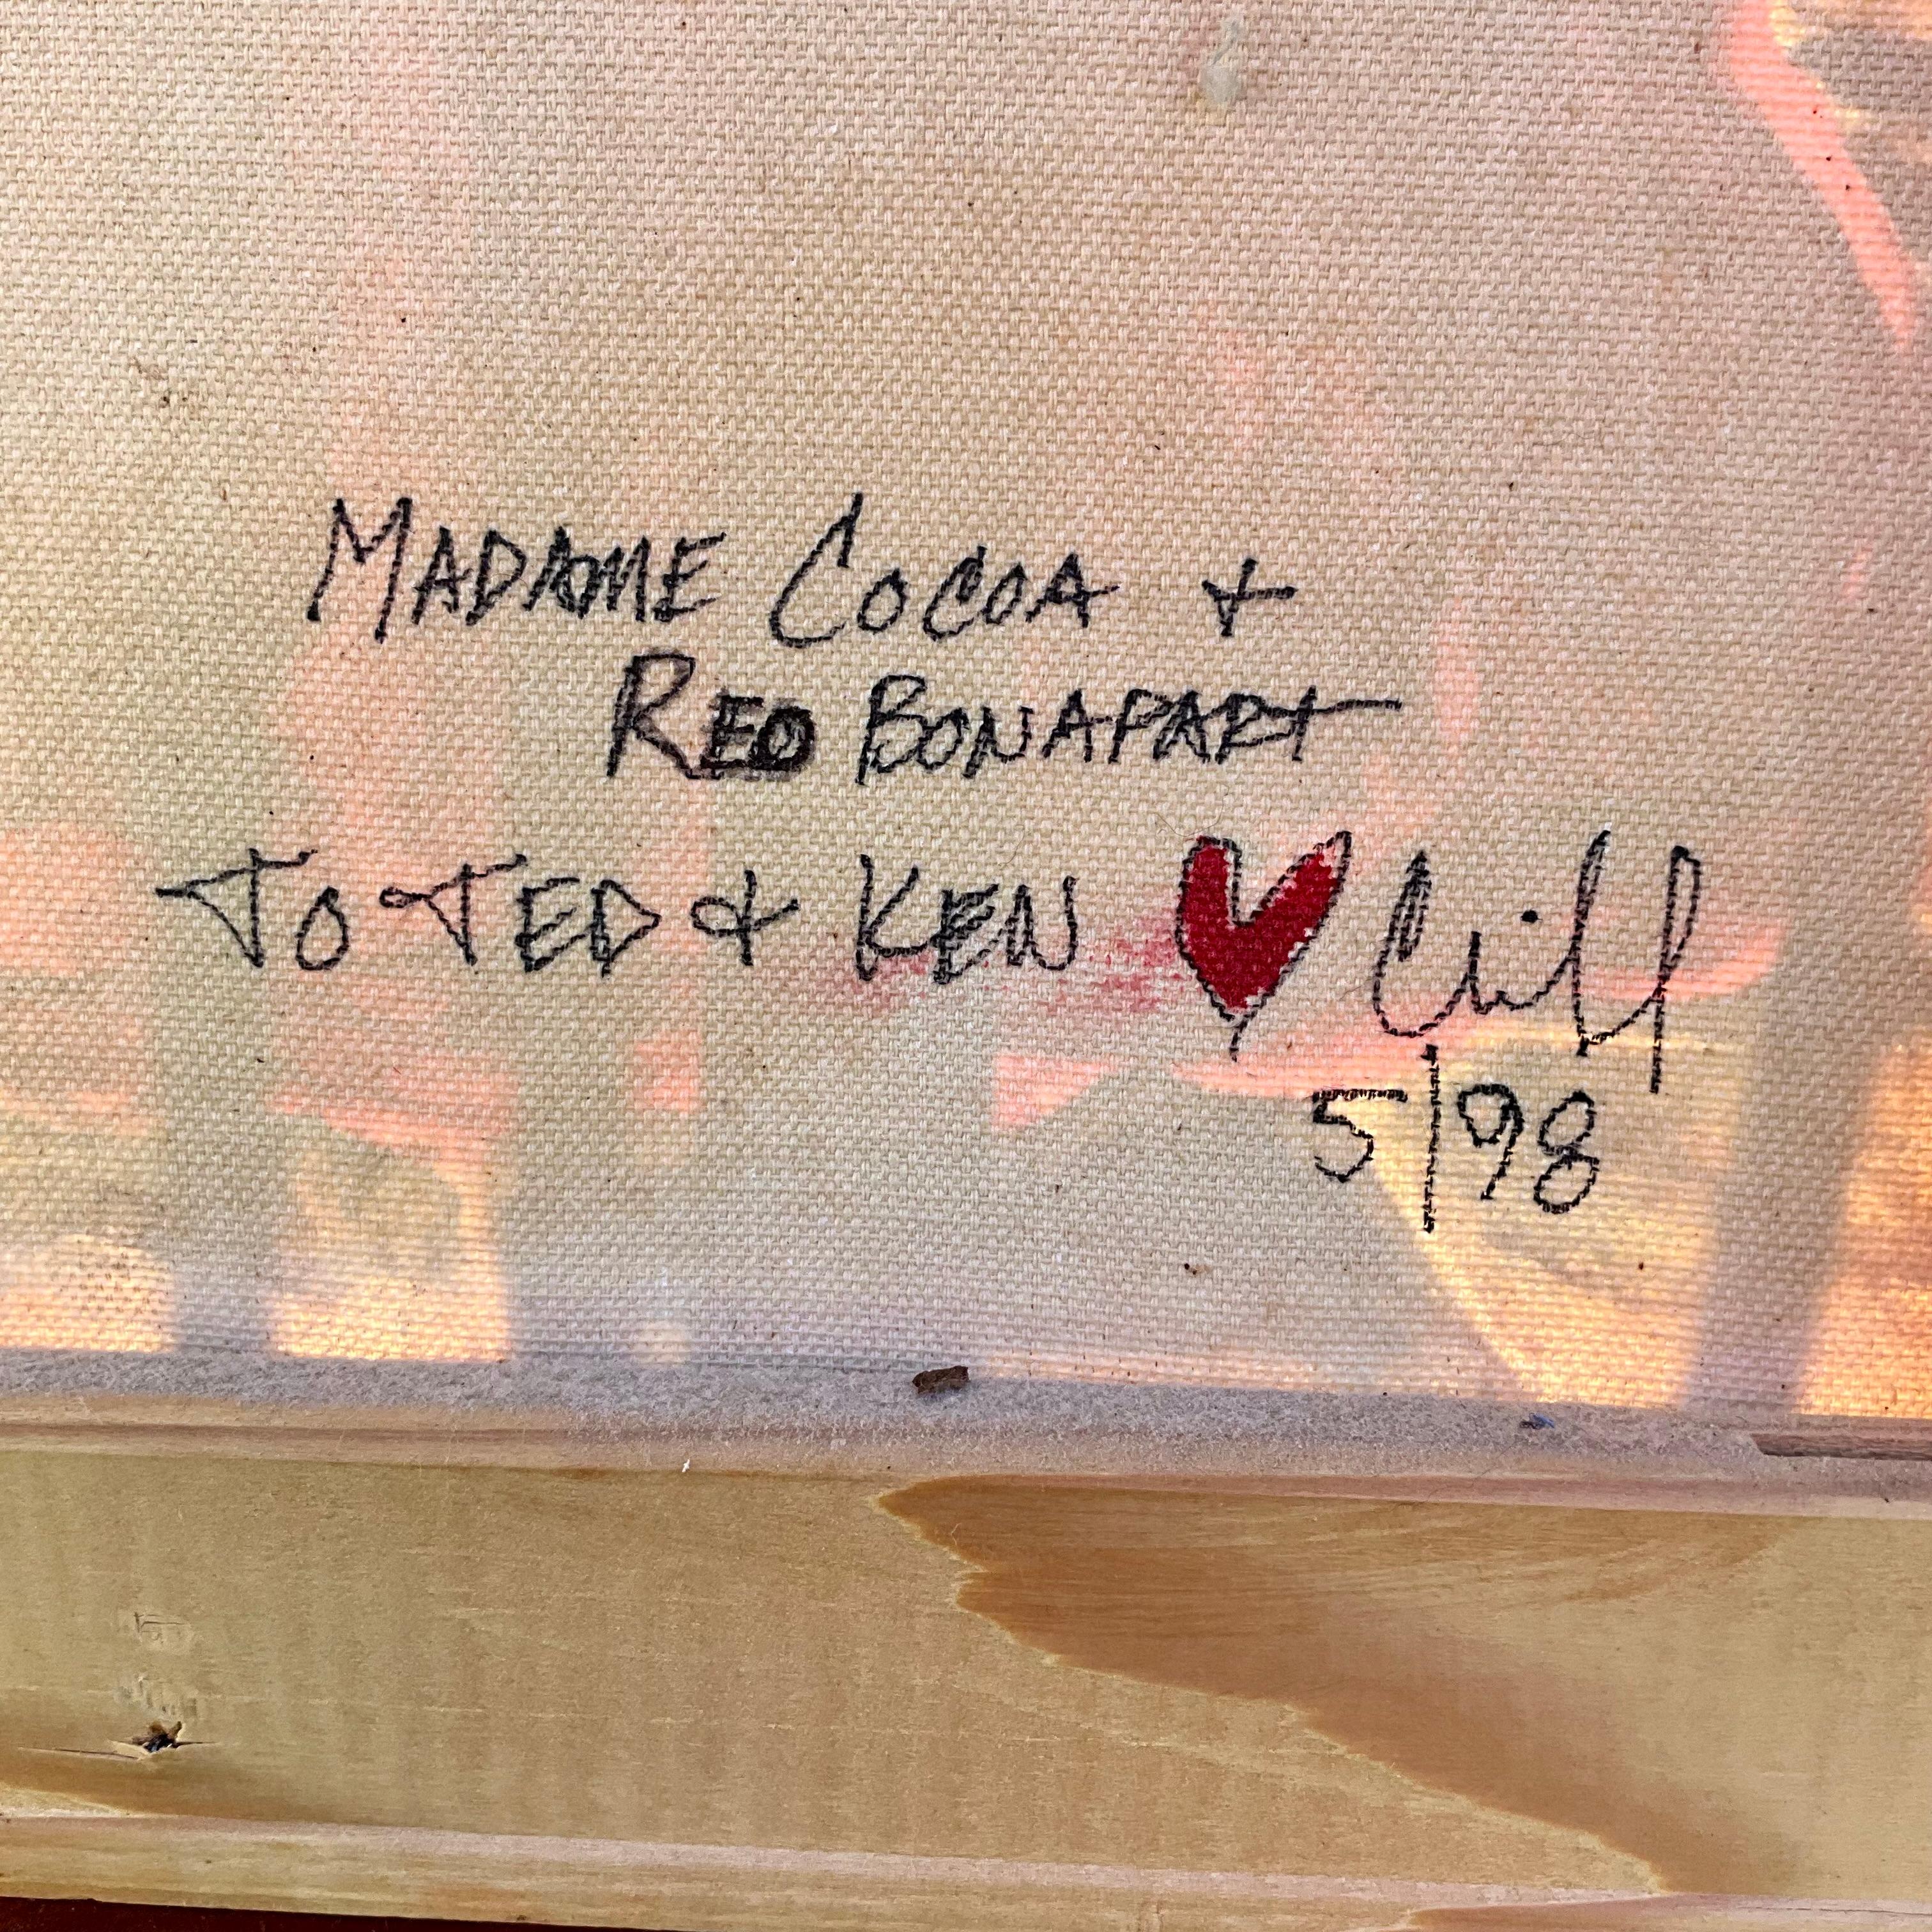 MADAME COCOA +
REO BONAPART
TO TED & KEN ♥ Cliff
5/98